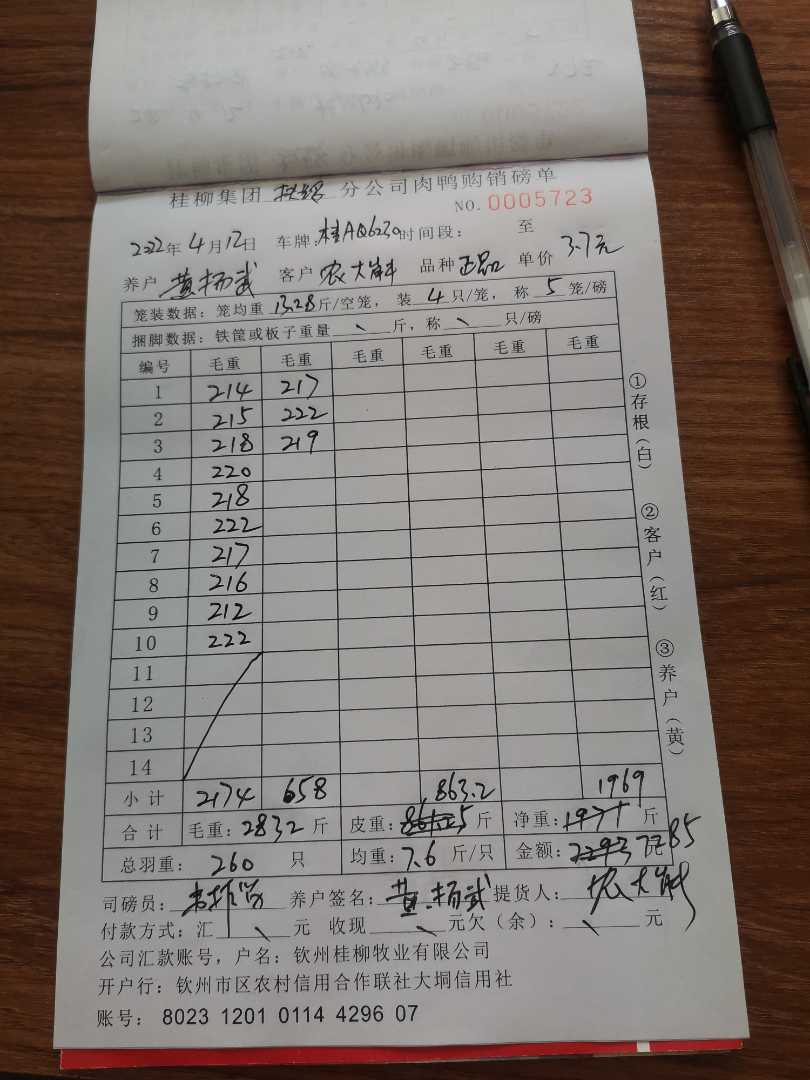 桂柳集团 分公司肉鸭购销磅单
NO. 0005723
2022年4月12日 车牌:桂AQ6230时间段: 至
养户 黄扬武 客户 农大 品种 正品 单价 3.7元
笼装数据:笼均重 13.28斤/空笼, 装 4 只/笼, 称 5 笼/磅
捆脚数据:铁筐或板子重量 \ 斤,称 \ 只/磅
编号 毛重 毛重 毛重 毛重 毛重 毛重
1 214 217
2 215 222
3 218 219
4 220
5 218
6 222
7 217
8 216
9 212
10 222
11
12
13
14
小计 2174 658 863.2 1969
合计 毛重:2832 斤 皮重: 斤 净重: 斤
总羽重: 260 只 均重:7.6 斤/只 金额: 7285
司磅员: 养户签名:黄扬武 提货人:农大
付款方式:汇 \ 元 收现 \ 元欠(余): \ 元
公司汇款账号,户名:钦州桂柳牧业有限公司
开户行:钦州市区农村信用合作联社大垌信用社
账号: 8023 1201 0114 4296 07
①存根(白)
②客户(红)
③养户(黄)